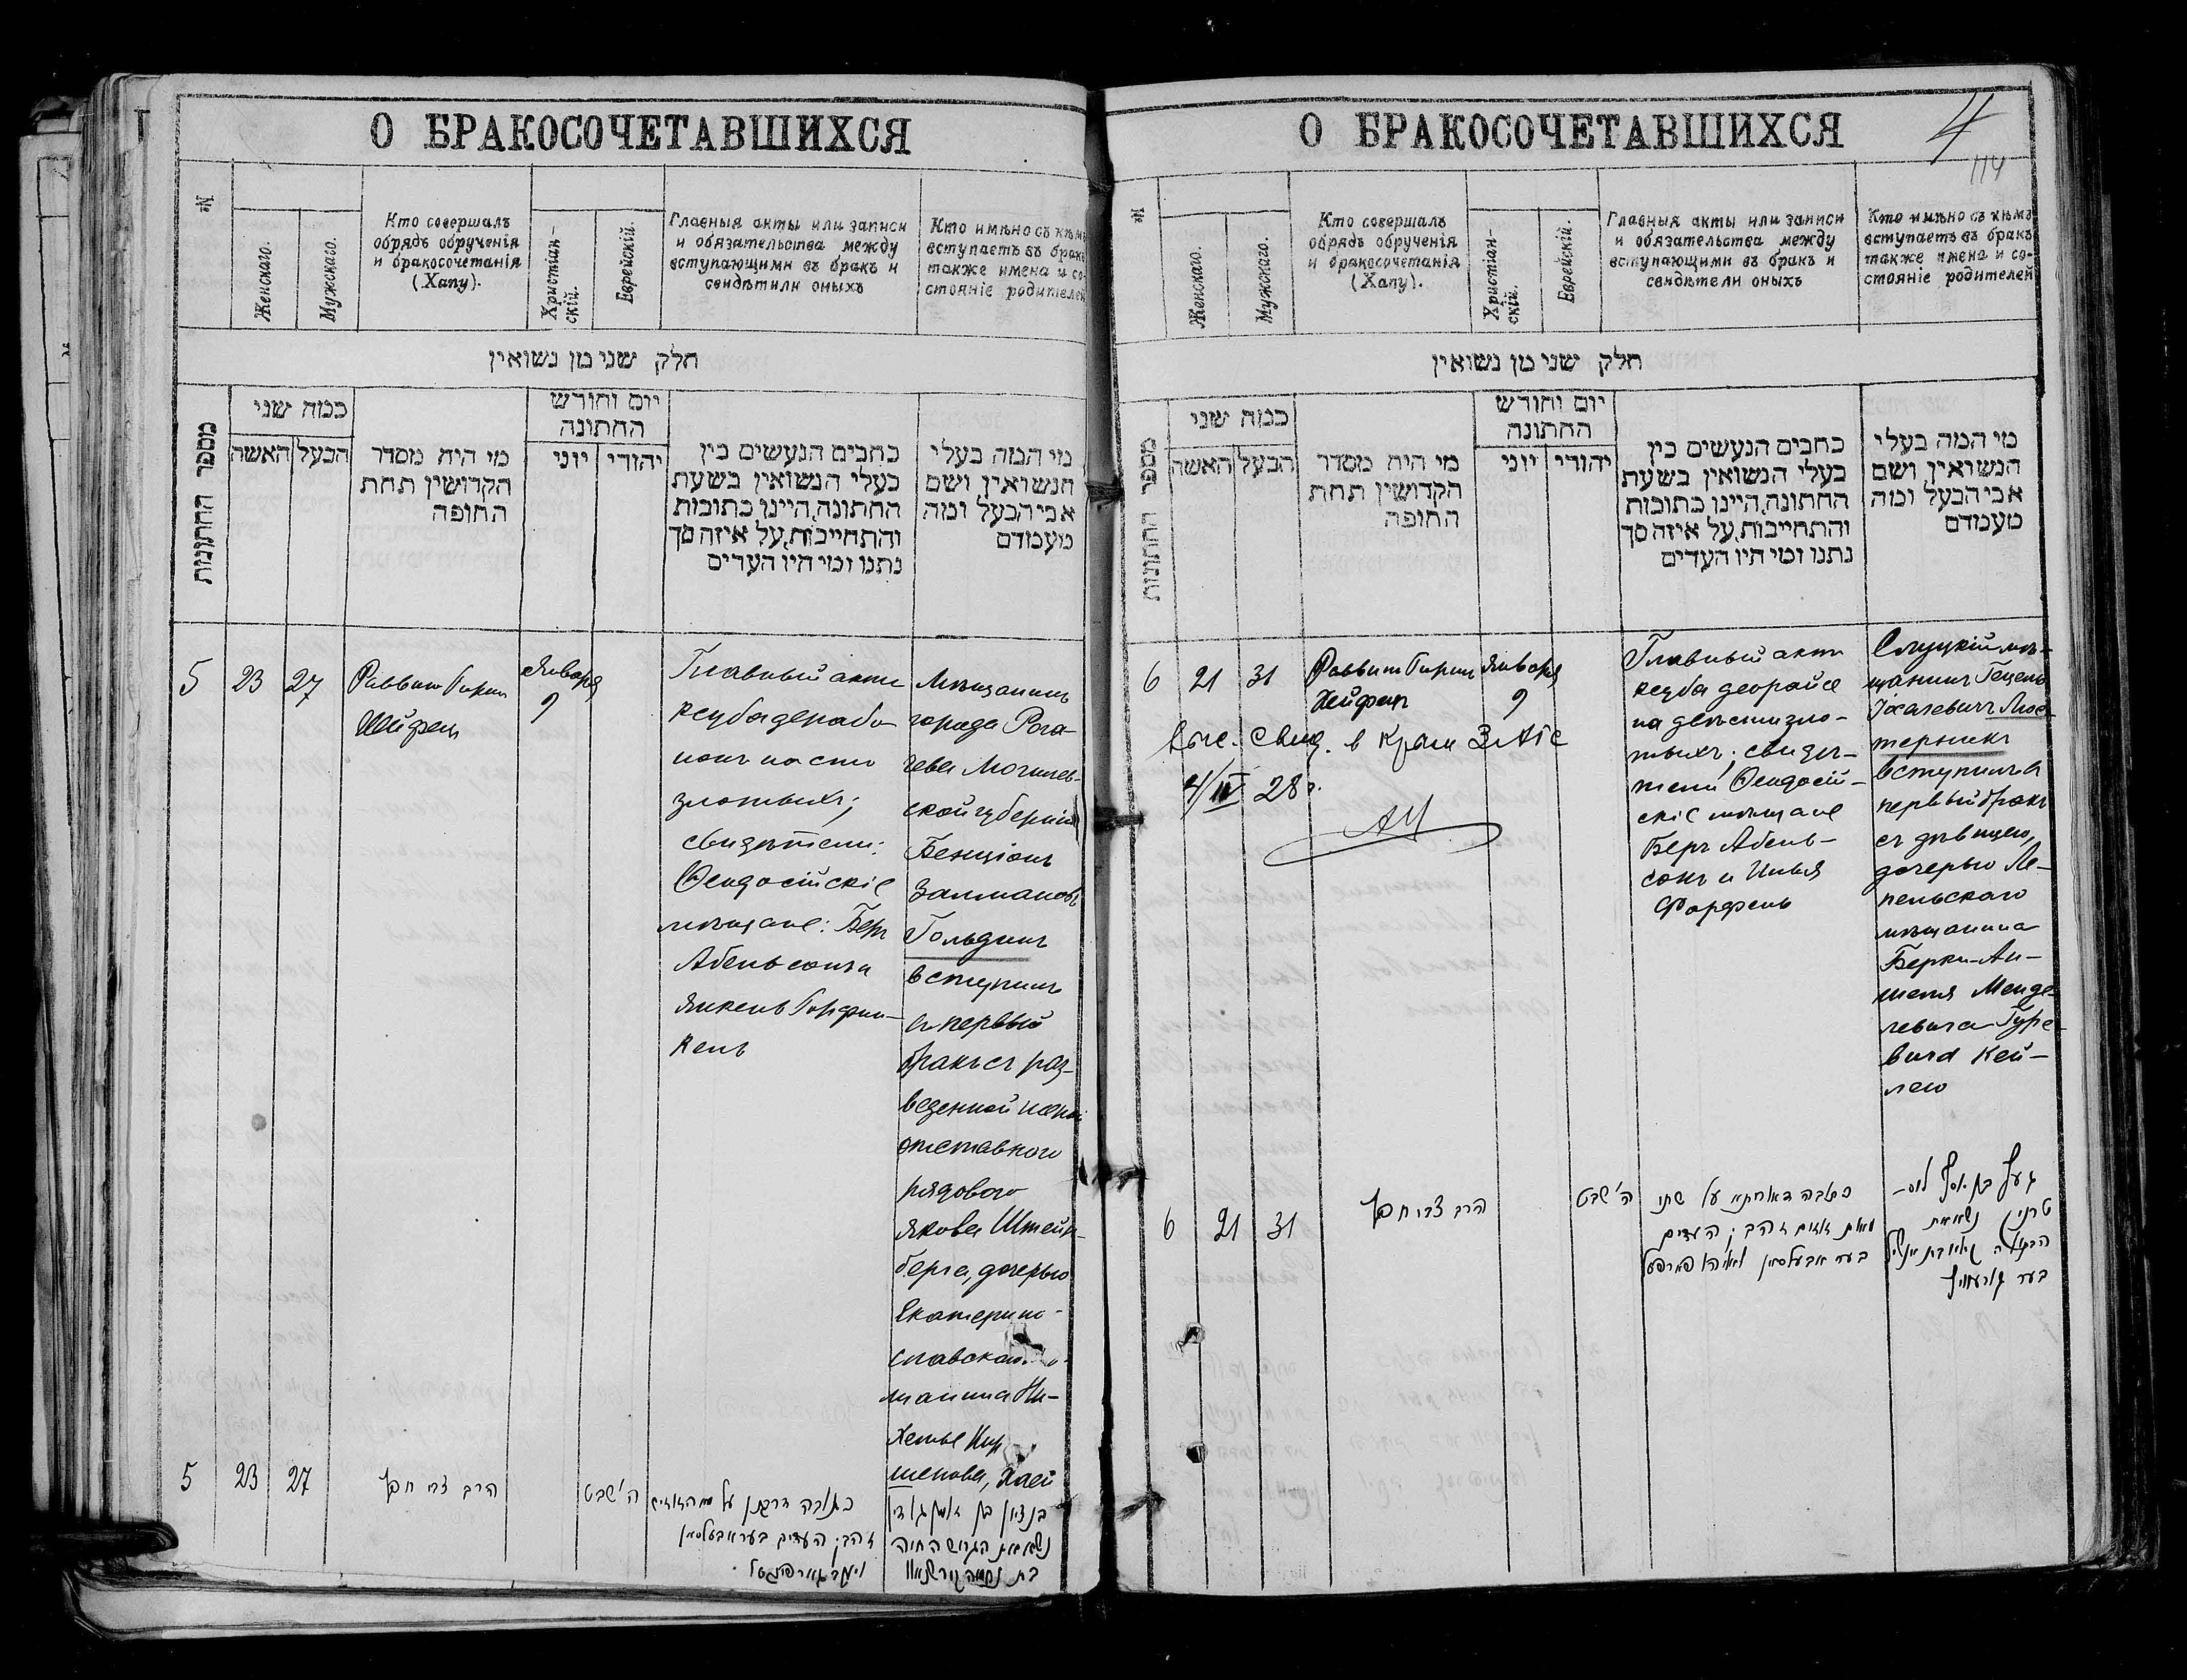 О БРАКОСОЧЕТАВШИХСЯ
№
Женскаго.
Мужскаго.
Кто совершалъ
обрядъ обрученія
и бракосочетанія
(Хапу).
Христіан-
скій.
Еврейскій.
Главныя акты или записи
и обязательства между
вступающими въ бракъ и
свидѣтили оныхъ
Кто имѣно съ кѣмъ
вступаетъ въ бракъ
также имена и со-
стояніе родителей
חלק שני מן נשואין
מספר החתונות
כמה שני
האשה
הבעל
מי היה מסדר
הקדושין תחת
החופה
יום וחורש
החתונה
יוני
יהודי
כתבים הנעשים בין
בעלי הנשואין בשעת
החתונה, היינו כתובות
והתחייבות, על איזה סך
נתנו ומי היו העדים
מי המה בעלי
הנשואין ושם
אבי הבעל ומה
מעמדם
5
23
27
Раввинъ Гиршъ
Хейфецъ
Января
9
Главный актъ
ксуба дерабо-
нонъ на сто
злотыхъ;
свидѣтели:
Ѳеодосійскіе
мѣщане: Беръ
Абельсонъ и
Янкель Гарфин-
кель
Мѣщанинъ
города Рога-
чева Могилев-
ской губерніи
Бенціонъ
Залмановъ
Гольдинъ
вступилъ
въ первый
бракъ съ раз-
веденной женой
отставного
рядового
Якова Штейн-
берга, дочерью
Екатерино-
славскаго
мѣщанина
шенова, Хаей
5
23
27
הרב צבי חפץ
ה' שבט
כתובה דרבנן על מאה זוזים
זהב; העדים בער אבעלסאן
ויעקב גארפינקעל.
בן ציון בן זלמן גולדין
נשא את הגרושה חיה
О БРАКОСОЧЕТАВШИХСЯ
4
114
№
Женскаго.
Мужскаго.
Кто совершалъ
обрядъ обрученія
и бракосочетанія
(Хапу).
Христіан-
скій.
Еврейскій.
Главныя акты или записи
и обязательства между
вступающими въ бракъ и
свидѣтели оныхъ
Кто имѣно съ кѣмъ
вступаетъ въ бракъ
также имена и со-
стояніе родителей
חלק שני מן נשואין
מספר החתונות
כמה שני
האשה
הבעל
מי היה מסדר
הקדושין תחת
החופה
יום וחורש
החתונה
יוני
יהודי
כתבים הנעשים בין
בעלי הנשואין בשעת
החתונה, היינו כתובות
והתחייבות, על איזה סך
נתנו ומי היו העדים
מי המה בעלי
הנשואין ושם
אבי הבעל ומה
מעמדם
6
21
31
Раввинъ Гиршъ
Хейфецъ
Января
9
Выс. свид. в Крым ЗАГС
4/IV 28 г.
Главный актъ
ксуба деорайсе
на двѣсти зло-
тыхъ; свидѣ-
тели Ѳеодосій-
скіе мѣщане
Беръ Абель-
сонъ и Илья
Фарфель
Слуцкій мѣ-
щанинъ Гецель
Іоселевичъ Люс-
терникъ
вступилъ въ
первый бракъ
съ дѣвицею,
дочерью Ле-
пельскаго
мѣщанина
Берки-Ан-
шеля Менде-
левича Гуре-
вича Кей-
лею
6
21
31
הרב צבי חפץ
ה' שבט
כתובה דאורייתא על שתי
מאות זוזים זהב; העדים
בער אבעלסאן ואליהו פארפעל
געץ בן יוסף לוס-
טרניק נשא את
הבתולה
בער גורעוויץ